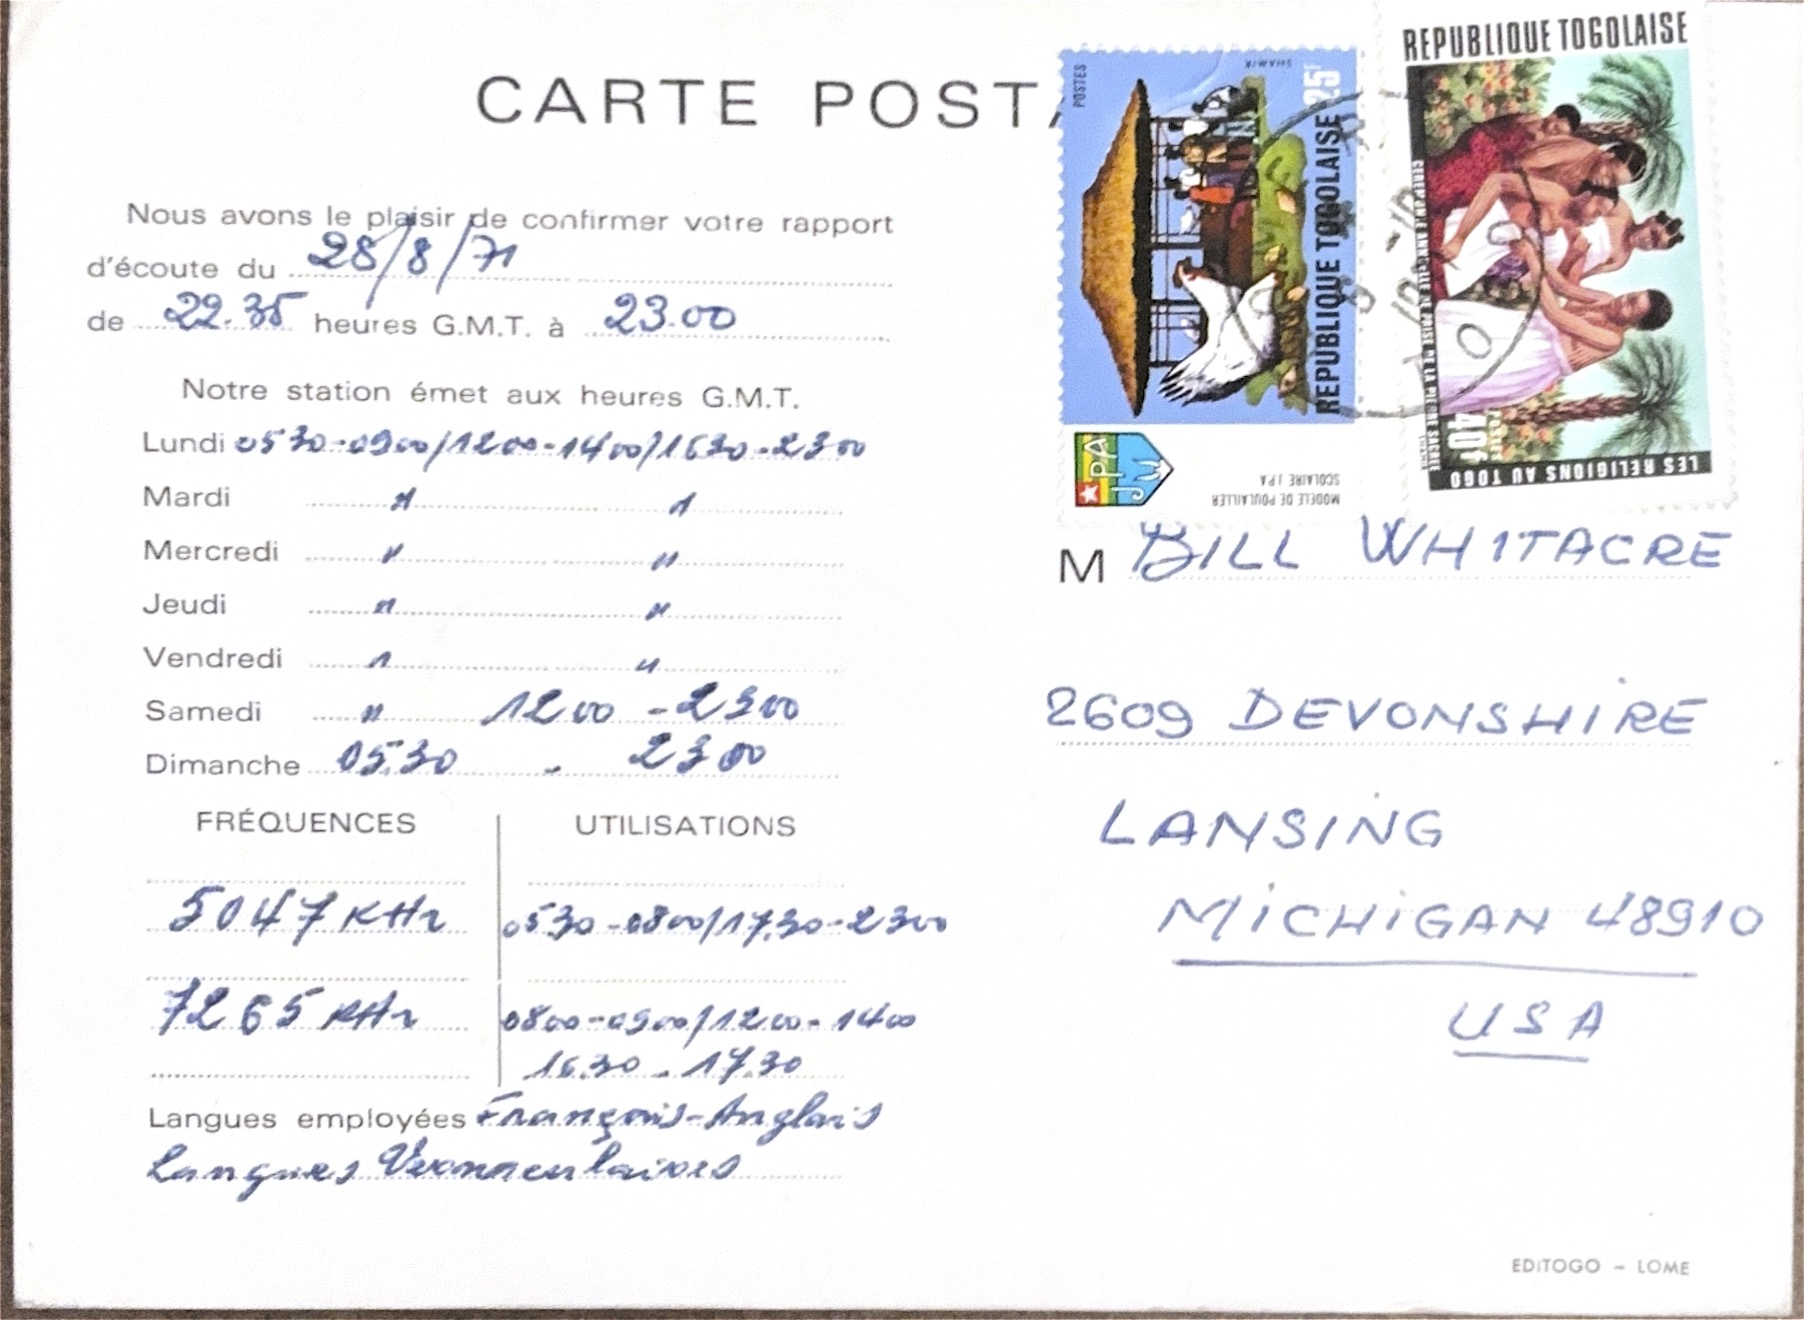 CARTE POST
Nous avons le plaisir de confirmer votre rapport
d'écoute du 28/8/71
de 22.35 heures G.M.T. à 23.00
Notre station émet aux heures G.M.T.
Lundi 0530-0900/1200-1400/1630-2300
Mardi " "
Mercredi " "
Jeudi " "
Vendredi " "
Samedi " 1200 - 2300
Dimanche 05.30 - 2300
FRÉQUENCES UTILISATIONS
5047 KHz 0530-0800/17.30-2300
7265 KHz 0800-0900/1200-1400
16.30 - 17.30
Langues employées Français-Anglais
Langues Vernaculaires
POSTES
SHAMIR
25F
REPUBLIQUE TOGOLAISE
JPA
MODELE DE POULAILLER
SCOLAIRE JPA
REPUBLIQUE TOGOLAISE
CEREMONIE ANNUELLE DE PRISE DE LA PIERRE SACREE
POSTES
40F
LES RELIGIONS AU TOGO
M BILL WHITACRE
2609 DEVONSHIRE
LANSING
MICHIGAN 48910
USA
EDITOGO - LOME